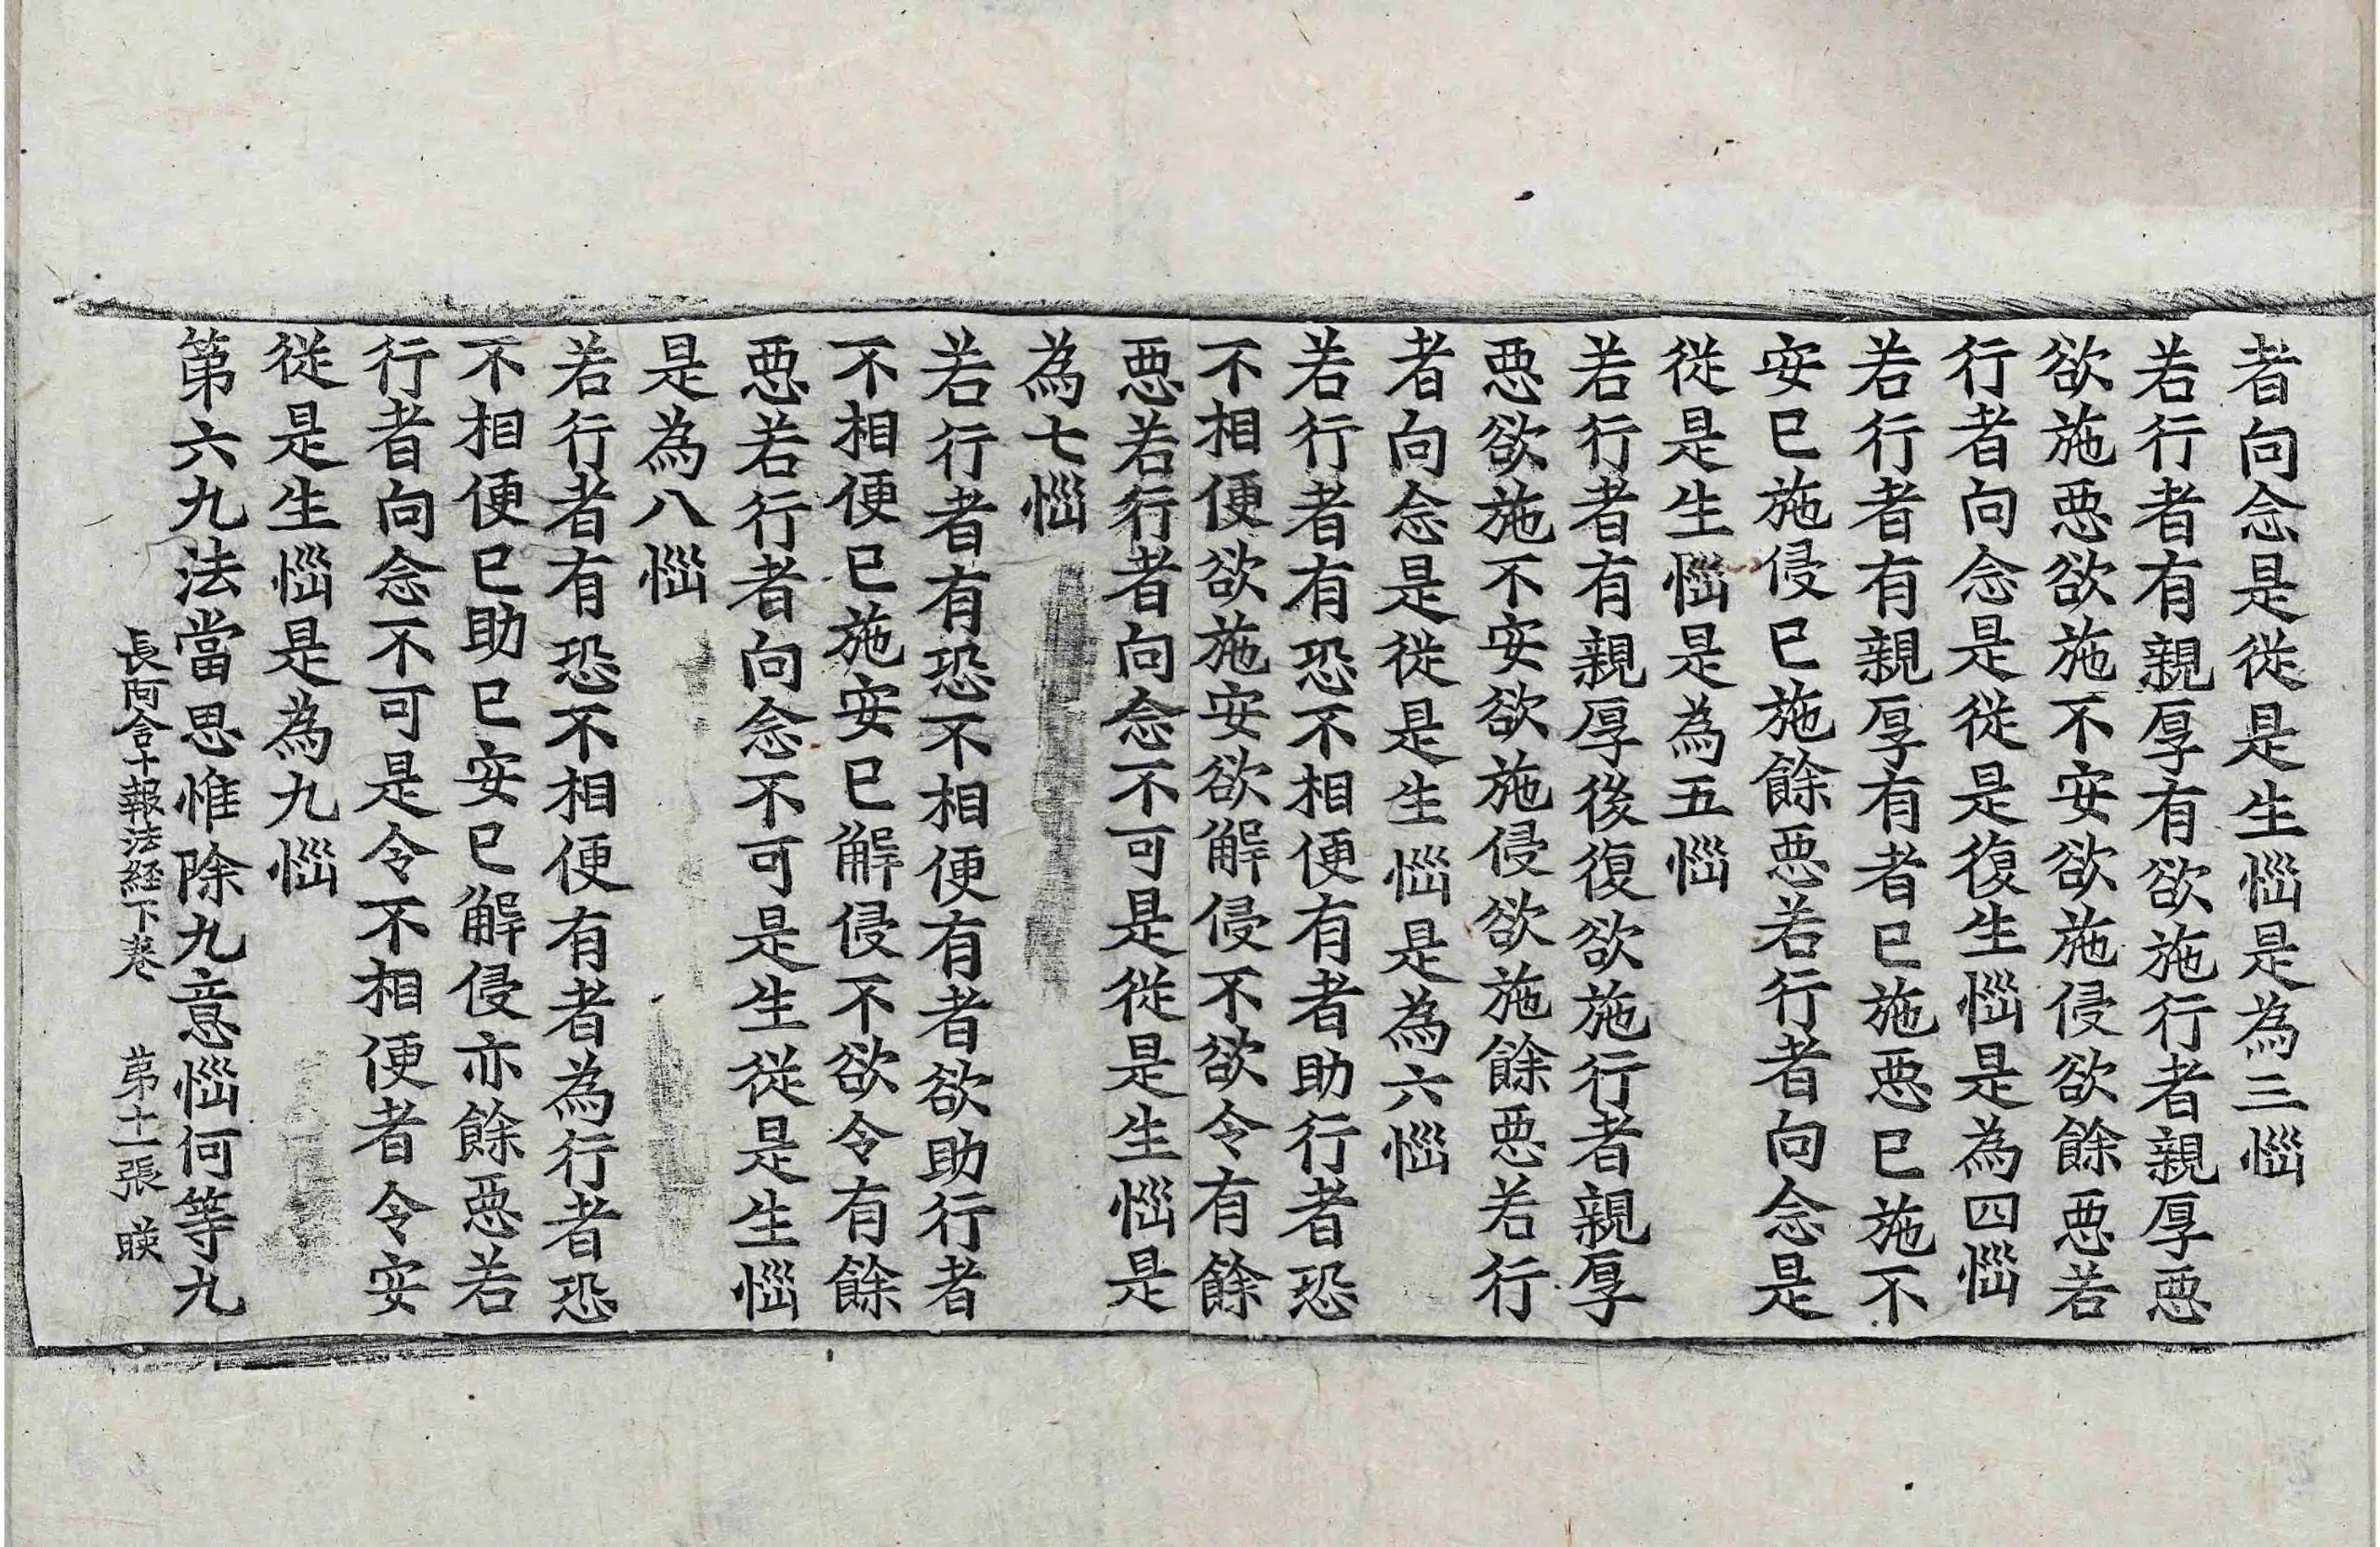 者向念是従是生惱是為三惱
若行者有親厚有欲施行者親厚惡
欲施惡欲施不安欲施侵欲餘惡若
行者向念是従是復生惱是為四惱
若行者有親厚有者已施惡已施不
安已施侵已施餘惡若行者向念是
従是生惱是為五惱
若行者有親厚後復欲施行者親厚
惡欲施不安欲施侵欲施餘惡若行
者向念是従是生惱是為六惱
若行者有恐不相便有者助行者恐
不相便欲施安欲解侵不欲令有餘
惡若行者向念不可是従是生惱是
為七惱
若行者有恐不相便有者欲助行者
不相便已施安已解侵不欲令有餘
惡若行者向念不可是生従是生惱
是為八惱
若行者有恐不相便有者為行者恐
不相便已助已安已解侵亦餘惡若
行者向念不可是令不相便者令安
従是生惱是為九惱
第六九法當思惟除九意惱何等九
長阿含十報法経下卷 第十一張 暎